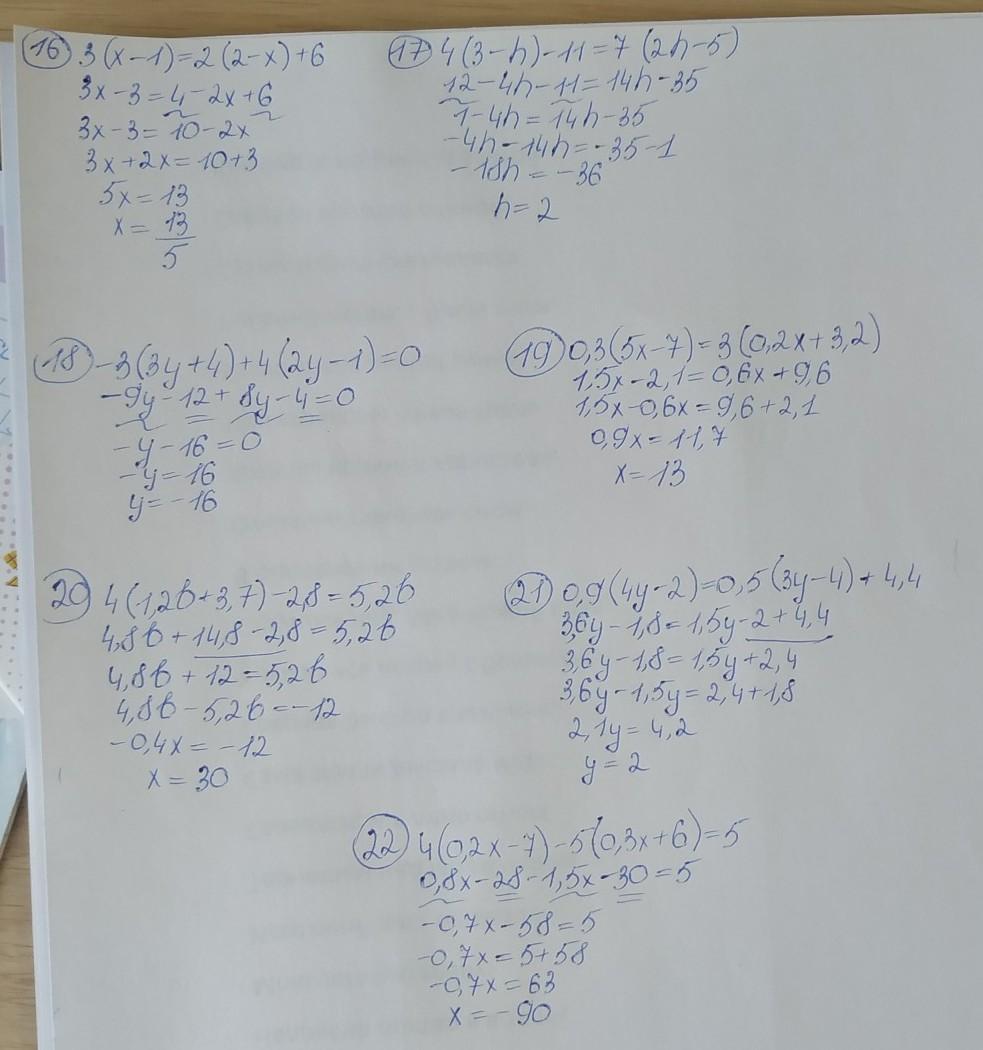 16 3(x-1)=2(2-x)+6
3x-3=4-2x+6
3x-3=10-2x
3x+2x=10+3
5x=13
x=13/5
17 4(3-h)-11=7(2h-5)
12-4h-11=14h-35
1-4h=14h-35
-4h-14h=-35-1
-18h=-36
h=2
18 -3(3y+4)+4(2y-1)=0
-9y-12+8y-4=0
-y-16=0
-y=16
y=-16
19 0,3(5x-7)=3(0,2x+3,2)
1,5x-2,1=0,6x+9,6
1,5x-0,6x=9,6+2,1
0,9x=11,7
x=13
20 4(1,2b+3,7)-2,8=5,2b
4,8b+14,8-2,8=5,2b
4,8b+12=5,2b
4,8b-5,2b=-12
-0,4x=-12
x=30
21 0,9(4y-2)=0,5(3y-4)+4,4
3,6y-1,8=1,5y-2+4,4
3,6y-1,8=1,5y+2,4
3,6y-1,5y=2,4+1,8
2,1y=4,2
y=2
22 4(0,2x-7)-5(0,3x+6)=5
0,8x-28-1,5x-30=5
-0,7x-58=5
-0,7x=5+58
-0,7x=63
x=-90